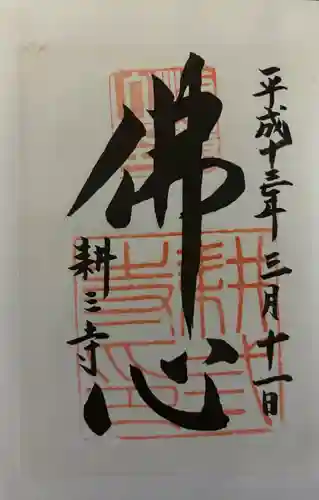 平成十三年三月十一日
佛心
耕三寺